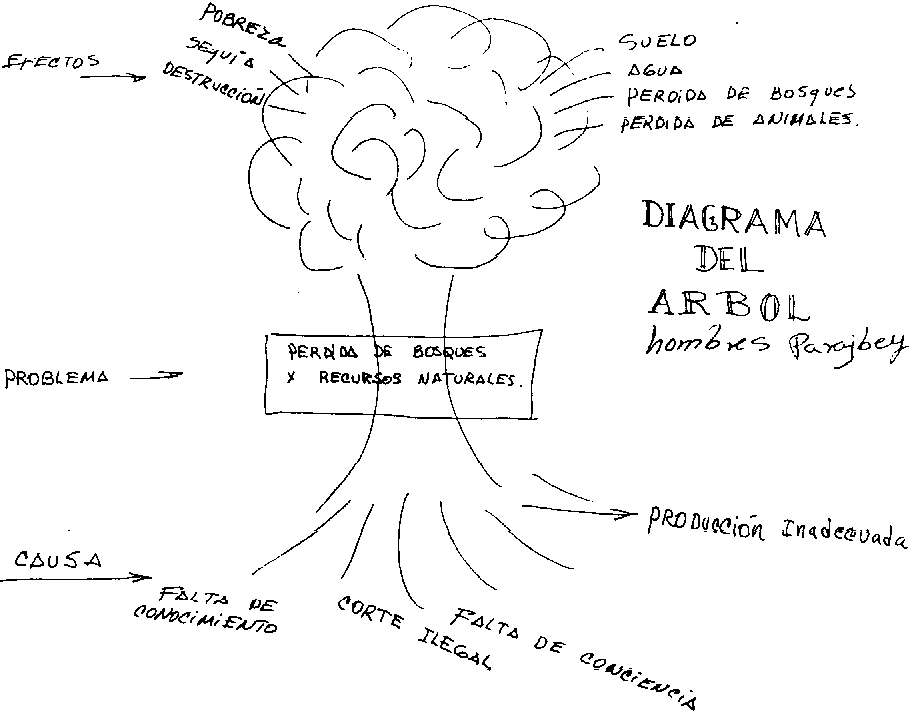 EFECTOS
POBREZA
SEQUIA
DESTRUCCIÓN
SUELO
AGUA
PERDIDA DE BOSQUES
PERDIDA DE ANIMALES.
DIAGRAMA
DEL
ARBOL
hombres Parajbey
PROBLEMA
PERDIDA DE BOSQUES
X RECURSOS NATURALES.
PRODUCCIÓN Inadecuada
CAUSA
FALTA DE
CONOCIMIENTO
CORTE
ILEGAL
FALTA DE CONCIENCIA